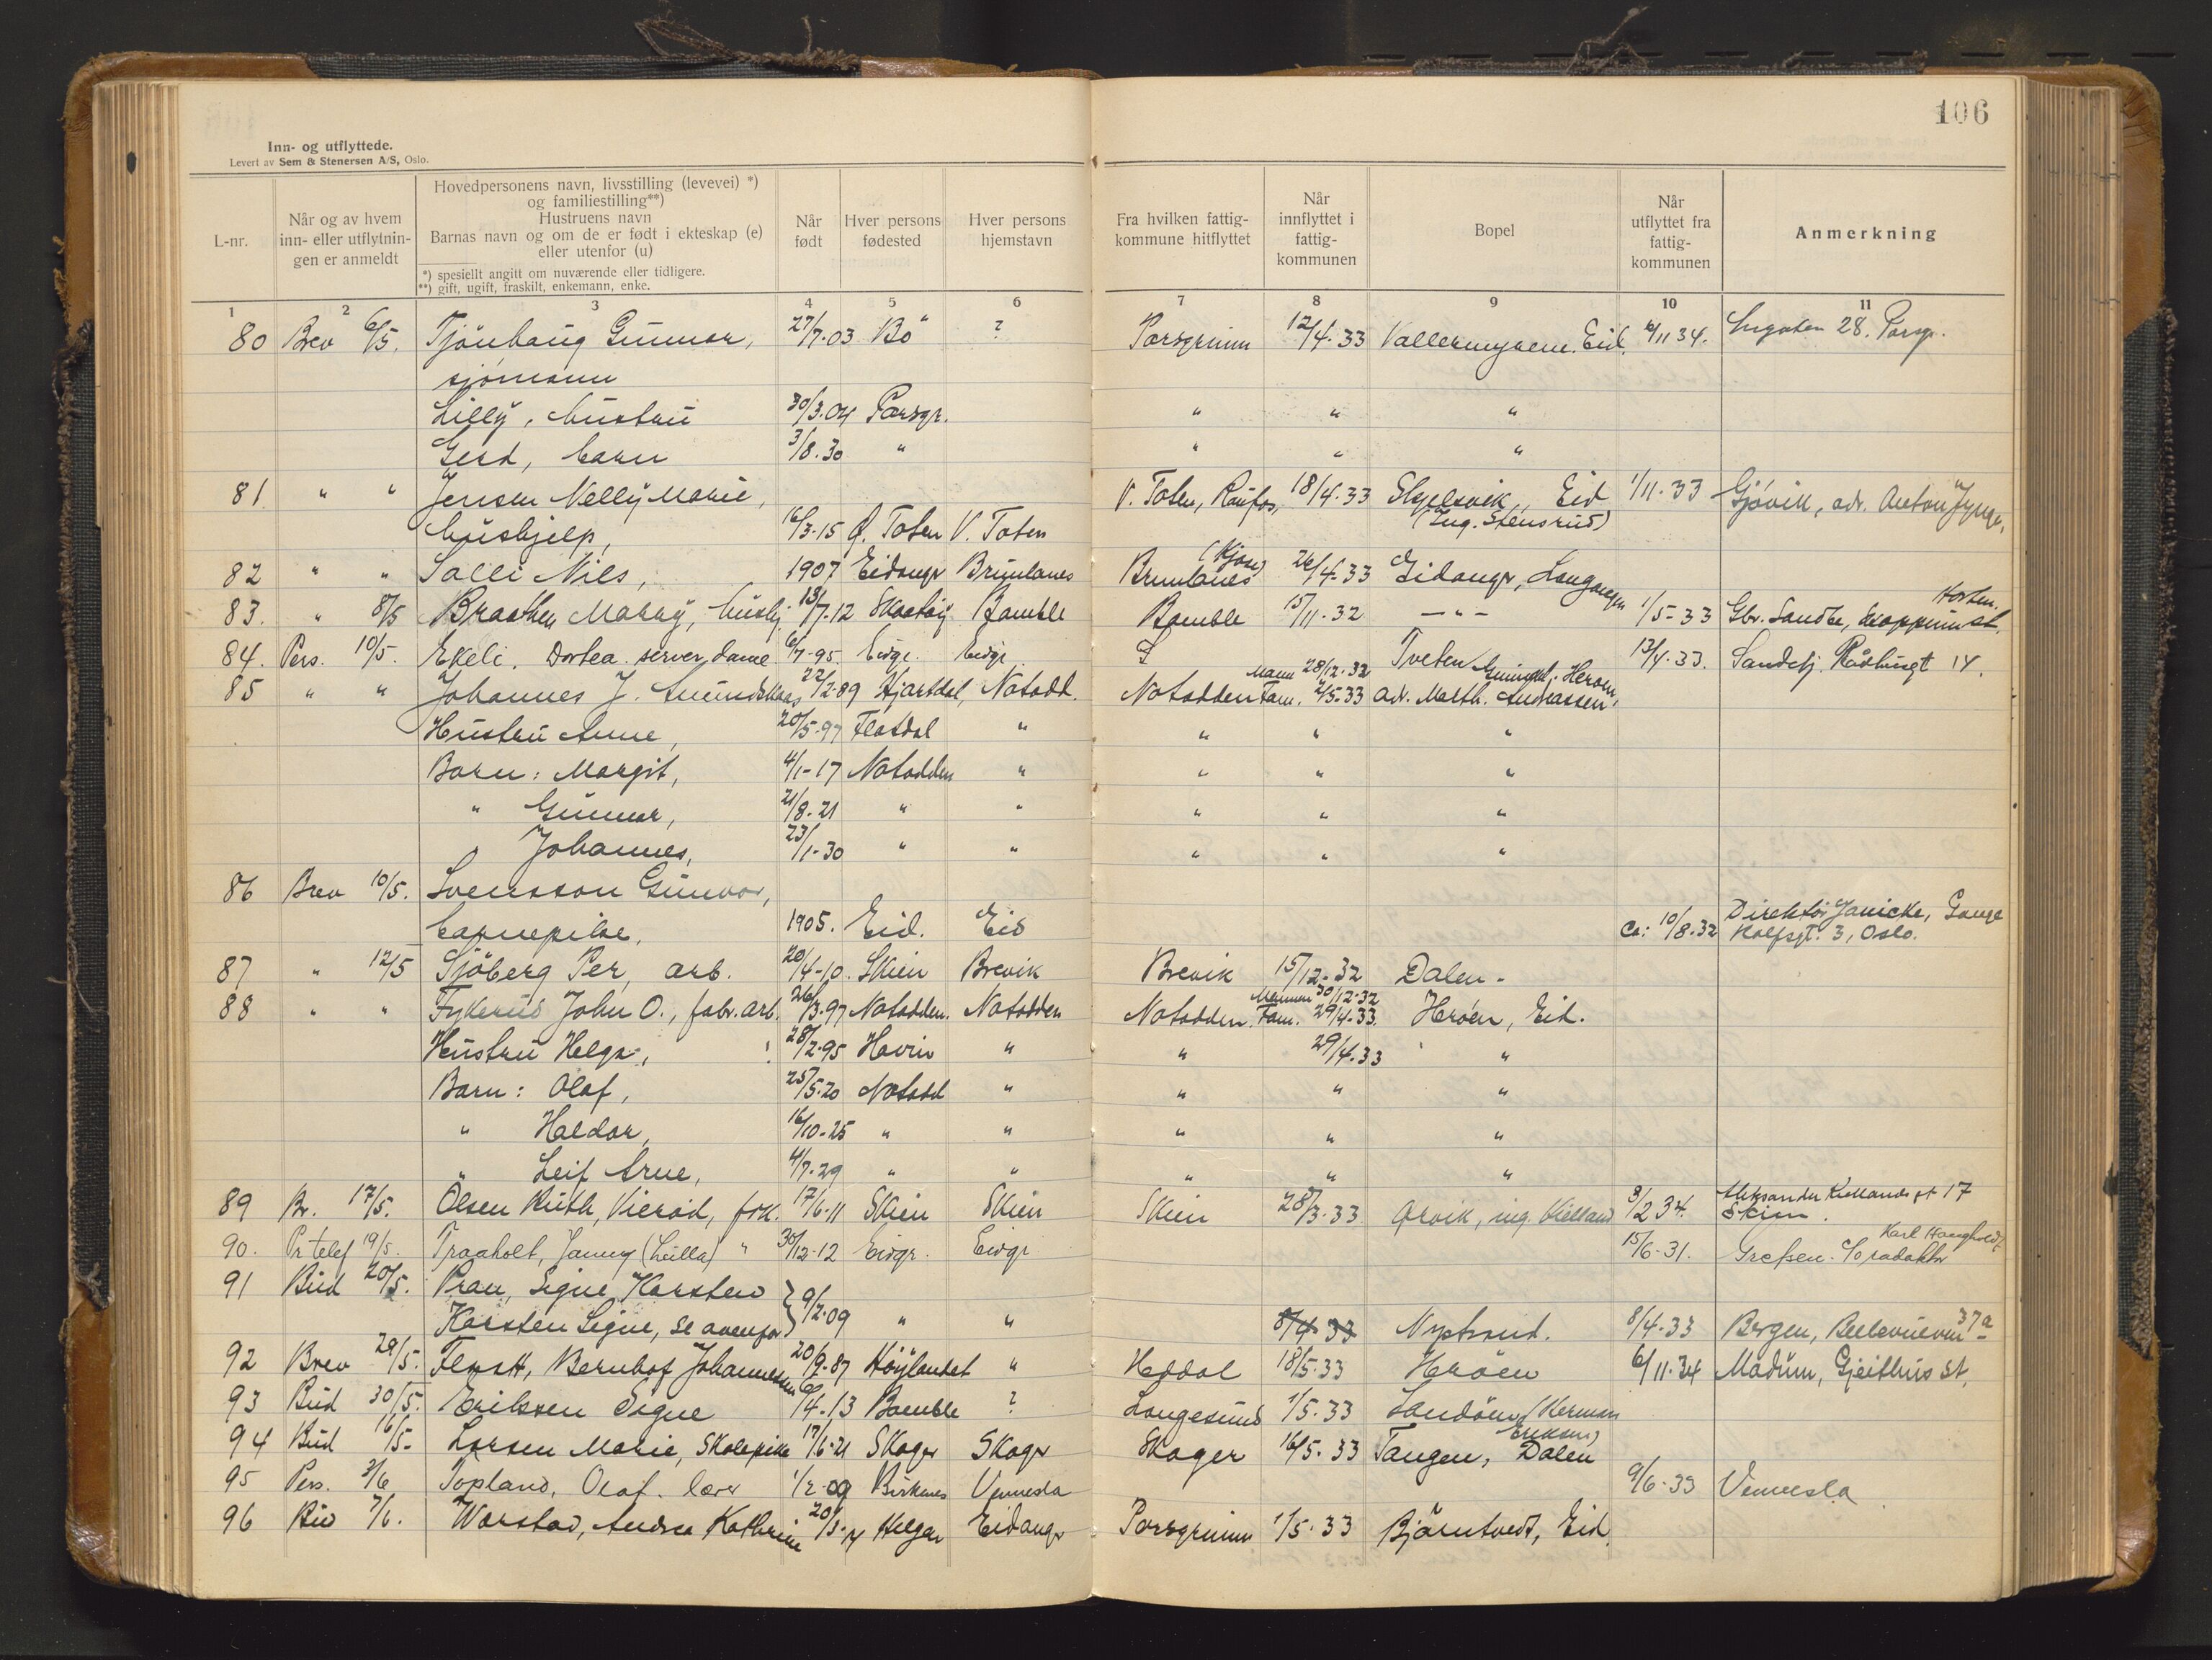 106
Inn- og utflyttede.
Levert av Sem & Stenersen A/S, Oslo.
L-nr.
Når og av hvem inn- eller utflytnin-gen er anmeldt
Hovedpersonens navn, livsstilling (levevei) *)
og familiestilling**)
Hustruens navn
Barnas navn og om de er født i ekteskap (e)
eller utenfor (u)
*) spesiellt angitt om nuværende eller tidligere.
**) gift, ugift, fraskilt, enkemann, enke.
Når født
Hver persons fødested
Hver persons hjemstavn
Fra hvilken fattig-kommune hitflyttet
Når innflyttet i fattig-kommunen
Bopel
Når utflyttet fra fattig-kommunen
Anmerkning
1 2 3 4 5 6 7 8 9 10 11
80 Brev 6/5. Gunnar, 27/7-03 Bö ? Porsgrunn 12/4-33 Vallermyrene. Eid. 6/11 34. 28. Porsgr.
sjömann
Lilly, hustru 30/3.04 Porsgr. " " "
Gerd, barn 3/8.30 " " " "
81 " " Jensen Nelly Marie, V. Toten, Raufos, 18/4-33 Skjelsvik, Eid 1/11-33 Gjövik, adr. Anton
hushjelp, 16/3-15 Ø. Toten V. Toten (Ing. Stensrud)
82 " " Salli Nils, 1907 Eidangr Brunlanes Brunlanes (Kjose) 26/4-33 Eidangr, Langangen
83. " 8/5 Braathen Marry, hushj. 13/7-12 Skaatöy Bamble Bamble 15/11-32 -"- 1/5-33 Gbr. Sandbe, Skoppum st. Horten.
84. Pers. 10/5. Ekeli, Dortea. server. dame 6/7-95. Eidgr. Eidgr Tveten 13/4.33. Sandefj. Rådhusgt 14.
85 " " Johannes J. Amundshaas 22/2-89 Hjartdal, Notodd. Notodden Mann 28/12-32 Fam. 2/5-33 Heröen, adr. Marth. Andreassen.
Hustru Anne, 20/5-97 Flatdal " " " "
Barn: Margit, 4/1-17 Notodden " " " "
" Gunnar, 21/8-21 " " " " "
" Johannes, 23/1-30 " " " " "
86 Brev 10/5. Svensson Gunvor,
barnepike, 1905. Eid. Eid Ca: 10/8-32 Direktör Janicke, Gange Rolfsgt. 3, Oslo.
87 " 12/5 Sjöberg Per, arb. 20/4-10. Skien Brevik Brevik 15/12-32 Dalen -
88 " " Fykerud John O., fabr. arb. 26/3-97 Notodden. Notodden Notodden. Mannen 30/12-32 Fam. 29/4-33. Heröen, Eid.
Hustru Helga, 28/2-95 Hovin " " 29/4-33 "
Barn: Olaf, 25/5-20 Notodd " " " "
" Haldor, 16/10-25 " " " " "
" Leif Arne, 4/7-29 " " " " "
89 Br. 17/5. Olsen Ruth, Vieröd, frk. 17/6-11 Skien Skien Skien 28/3-33 Örvik, ing. Kielland 3/2 34. Aleksander Kiellands gt 17 Skien.
90. Pr telef 19/5. Traaholt, Jenny (Lulla) " 30/12-12 Eidgr. Eidgr 15/6-31. Grefsen. c/o radaktör Karl Hangholdt
91 Bud 20/5. Prau, Signe Karsten
Karsten Signe, se ovenfor } 9/2-09 " " 8/4 33 Nystrand. 8/4-33 Bergen, Bellevueven 37a
92 Brev 28/5. Flaatt, Bernhof Johannessen 20/9-87 Höylandet " Heddal 18/5-33 Heröen 6/11-34 Modum, Gjeithus st.
93 Bud 30/5. Eriksen Signe 6/4-13 Bamble ? Langesund 1/5-33 Sandöen (Herman Eriksen)
94 Bud 16/5- Larsen Marie, skolepike 17/6-21 Skoger Skogr Skoger 16/5-33 Tangen, Dalen
95 Pers. 3/6 Topland, Olaf. lærer 1/2-09 Birkenes Vennesla 9/6-33 Vennesla
96 Bud 7/6. Warstad, Andrea Kathrine Helgen Eidangr Porsgrunn 1/5-33 Björntvedt, Eid.